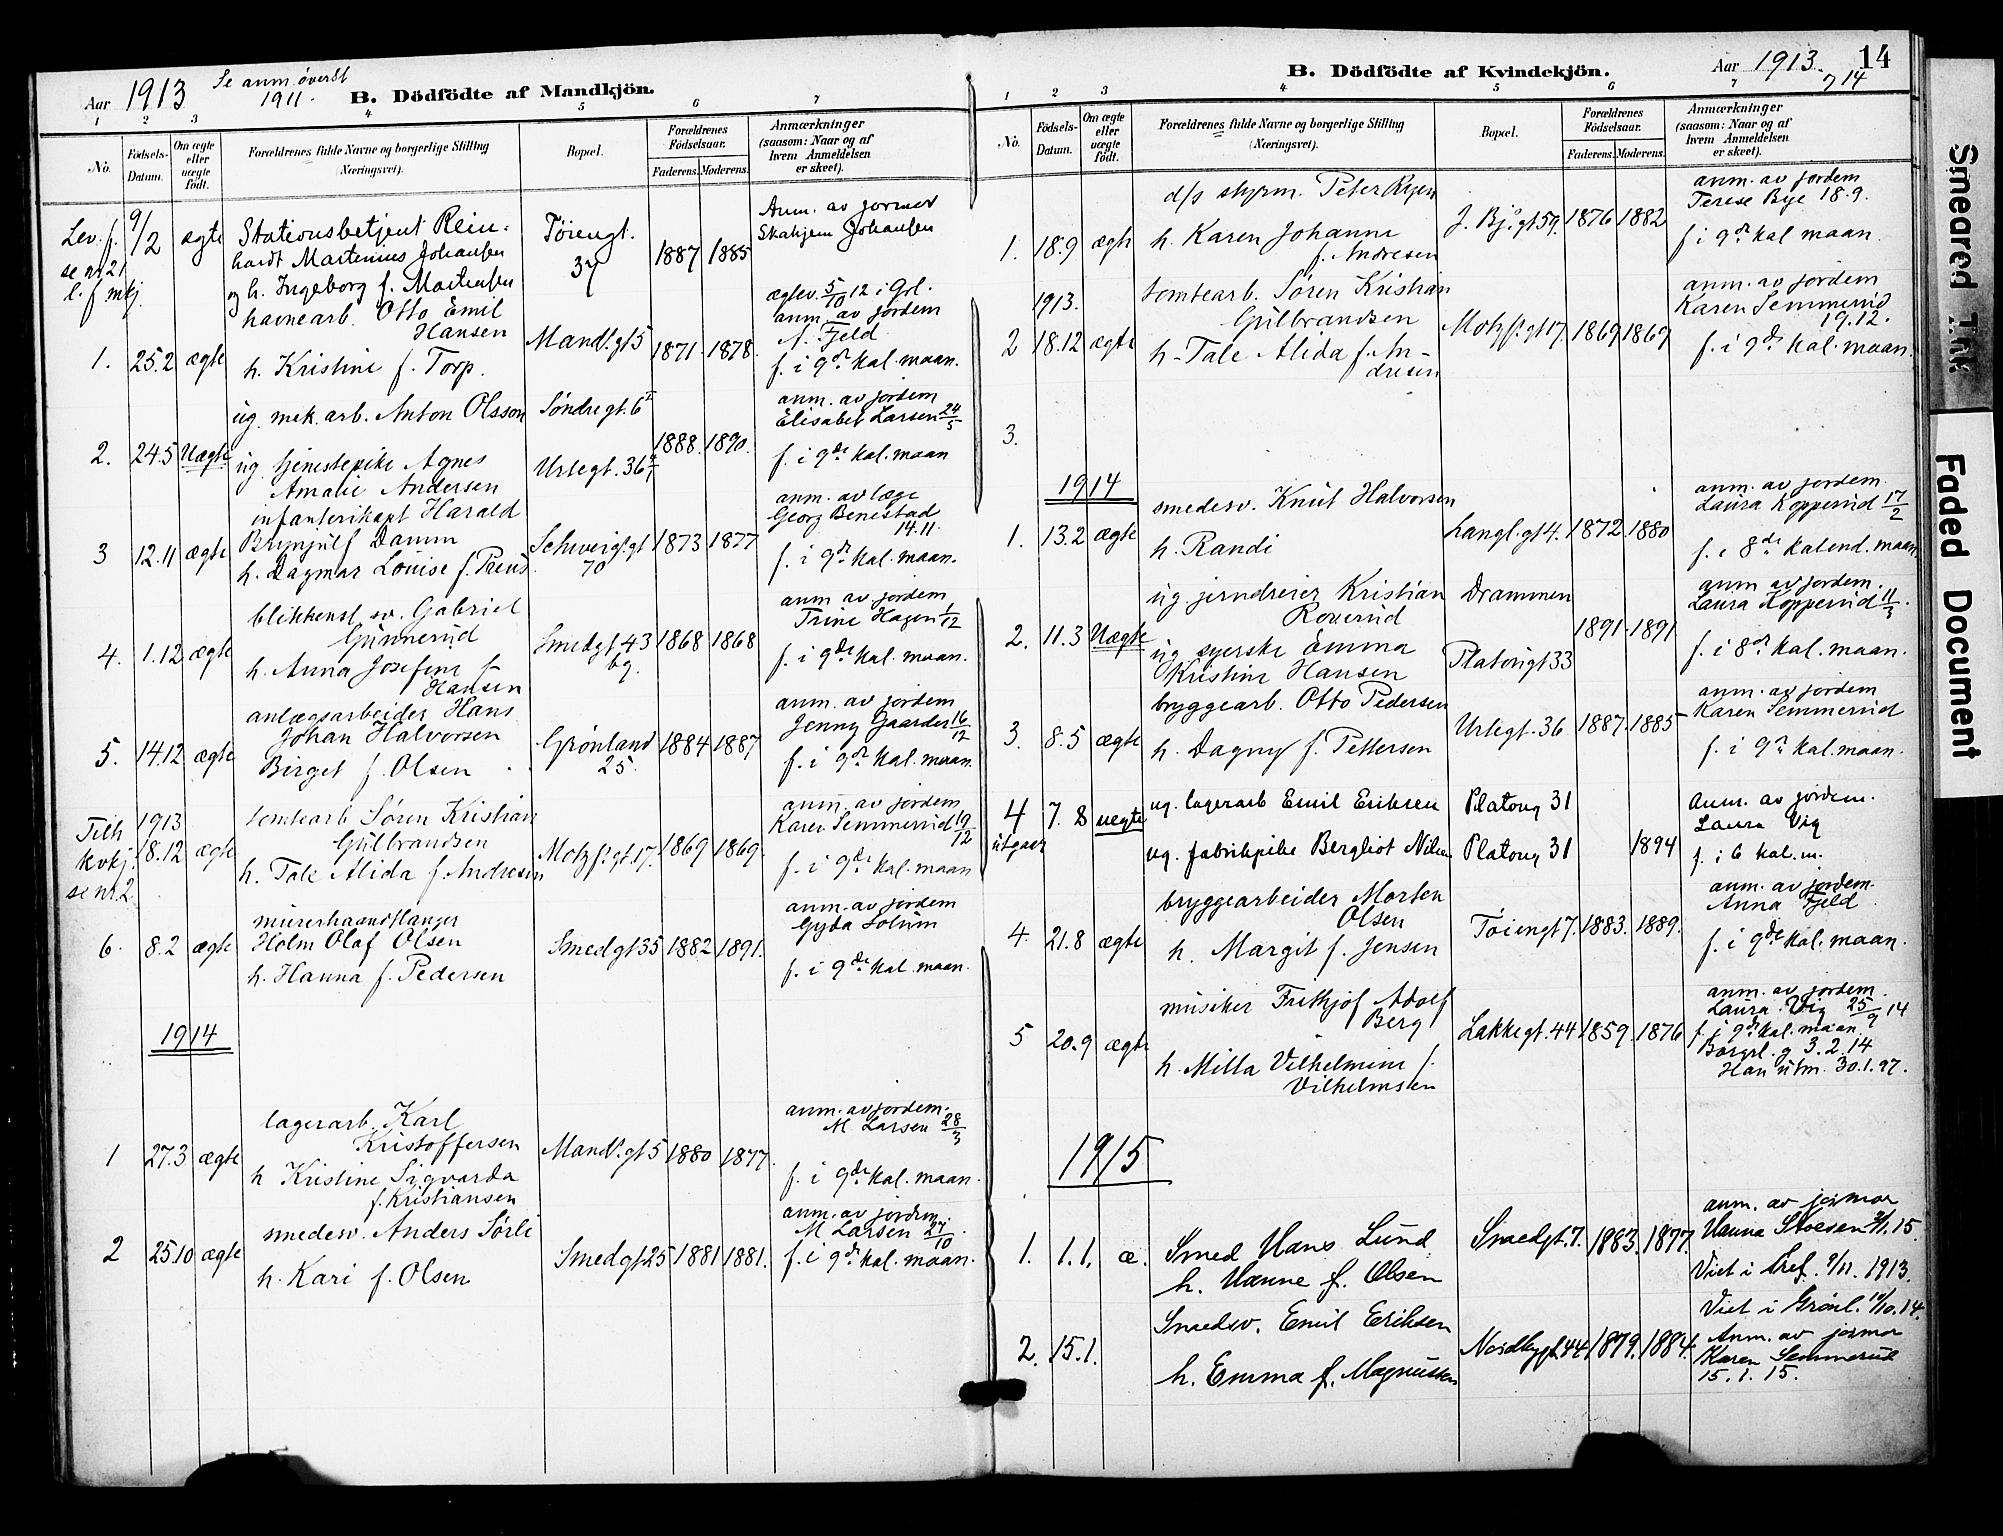 Aar 1913 Se anm. överst
1911.
B. Dödfödte af Mandkjön.
1 2 3 4 5 6 7
No. Födsels-Datum. Om ægte eller uægte født. Forældrenes fulde Navne og borgerlige Stilling (Næringsvei). Bopæl. Forældrenes Födselsaar. Faderens. Moderens. Anmærkninger (saasom: Naar og af hvem Anmeldelsen er skeet).
Lev. f. 9/2 ægte Stationsbetjent Rein- Töiengt. 1887 1885 Anm. av jormor
se nr. 21 hardt Martenius Johansen 37 Johansen
l. f. mkj. og h. Ingeborg f. Martensen
ægtev. 5/10 12 i Grl.
havnearb. Otto Emil anm. av jordem
Hansen Mandl.gt 5 A. Fjeld
1. 25.2 ægte h. Kristine f. Torp. 1871. 1878. f. i 9de kal. maan.
ug. mek. arb. Anton Olsson Søndregt. 6 anm. av jordem
Elisabet Larsen 24/5
2. 24.5 Uægte ug. tjenestepike Agnes Urtegt. 36 1888. 1890. f. i 9de kal. maan
Amalie Andersen
infanterikapt Harald anm. av læge
Brynjulf Damm Georg Benestad
14.11.
3 12.11 ægte h. Dagmar Louise f. Preus Schweigt.gt 70 1873 1877 f. i 9de kal. maan.
blikkensl. sv. Gabriel anm av jordem
Gunnerud Trine Hagen 1/12
4. 1.12 ægte h. Anna Josefine f. Smedgt 43 bg. 1868 1868 f. i 9de kal. maan.
Hansen
anlægsarbeider Hans anm. av jordem
Johan Halvorsen Jenny Gaarder 16/12
5. 14.12 ægte Birget f. Olsen Grønland 25. 1884 1887 f. i 9de kal. maan.
1913 tomtearb Søren Kristian anm. av jordem
Tilh. Gulbrandsen Karen Semmerud 19/12
kvkj. 18.12 ægte h. Tale Alida f. Andresen Motzf.gt 17. 1869 1869 f. i 9de kal. maan
se nr. 2
murerhaandlanger anm. av jordem
Holm Olaf Olsen Gyda Solum
6. 8.2 ægte h. Hanna f. Pedersen Smedgt 35 1882 1891. f. i 9de kal. maan.
1914
lagerarb. Karl anm. av jordem.
Kristoffersen M Larsen 28/3
1 27.3 ægte h Kristine Sigvarda Mandl.gt 5 1880 1877 f. i 9de kal. maan.
f. Kristiansen
smedesv. Anders Sørli anm. av jordem.
M Larsen 27/10
2 25.10 ægte h. Kari f. Olsen Smedgt 25 1881 1881. f. i 9de kal. maan.
B. Dödfödte af Kvindekjön. Aar 1913. 14
og 14
1 2 3 4 5 6 7
No. Födsels-Datum. Om ægte eller uægte født. Forældrenes fulde Navne og borgerlige Stilling (Næringsvei). Bopæl. Forældrenes Födselsaar. Faderens. Moderens. Anmærkninger (saasom: Naar og af hvem Anmeldelsen er skeet).
d/s styrm. Peter Ryen anm. av jordem
Terese Bye 18.9.
1. 18.9 ægte h. Karen Johanne J. Bj.gt 59. 1876 1882 f. i 9de kal maan.
f. Andresen
1913. tomtearb. Søren Kristian anm. av jordem
Gulbrandsen Karen Semmerud
19.12.
2 18.12 ægte h. Tale Alida f. An- Motzf.gt 17. 1869 1869 f. i 9de kal. maan.
dresen
3.
1914
smedesv. Knut Halvorsen anm. av jordem.
Laura Kopperud 17/2
1. 13.2 ægte h. Randi Langl.gt 4. 1872. 1880 f. i 8de kalend. maan
ug jerndreier Kristian Drammen anm av jordem.
Roverud Laura Kopperud 11/3.
2. 11.3 Uægte ug syerske Emma Platougt 33 1891. 1891 f. i 8de kal. maan.
Kristine Hansen
bryggearb. Otto Pedersen anm. av jordem
Karen Semmerud
3. 8.5 ægte h. Dagny f. Pettersen Urtegt. 36 1887. 1885 f. i 9de kal. maan.
4 7.8 uægte ug. lagerarb Emil Eriksen Platoug 31 Anm. av jordem.
utgaar Laura Vig
ug. fabrikpike Bergliot Nilsen Platoug 31 1894 f. i 6 kal. m.
bryggearbeider Morten anm. av jordem.
Olsen Anna Fjeld
4. 21.8 ægte h. Margit f. Jensen Töiengt 7. 1883. 1889. f. i 9de kal. maan.
musiker Frithjof Adolf anm. av jordem.
Berg Laura Vig 25/9 14
5 20.9 ægte h. Milla Vilhelmine f. Lakkegt. 44 1859. 1876 f. i 9de kal. maan.
Vilhelmsen Borgl. g 3.2.14
Han utm. 30.1.97.
1915
anm. av jormor
1. 1.1. æ. Smed Hans Lund Smedgt. 7. 1883. 1877. Hanna Stoesen 2/1. 15
h. Hanne f. Olsen Viet i Tref. 9/11. 1913.
Smedsv. Emil Eriksen Viet i Grönl. 11/10. 14.
2. 15.1. Nordbygt 44 1879. 1884. Anm. av jormor
h. Emma f. Magnussen Karen Semmerud
15. 1. 15.
Smeared Ink
Faded Document